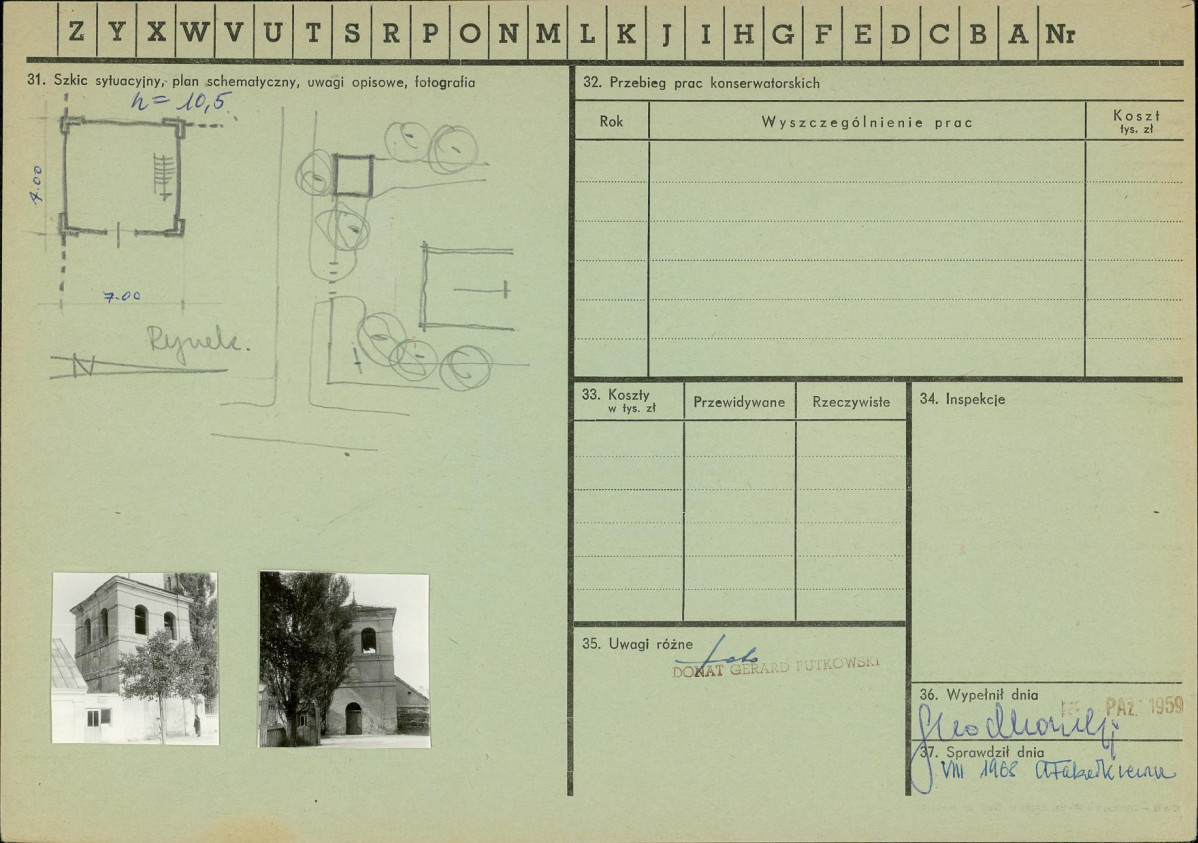 Z Y X W V U T S R P O N M L K J I H G F E D C B A Nr
31. Szkic sytuacyjny, plan schematyczny, uwagi opisowe, fotografia
h = 10,5
7.00
7.00
Rynek.
N
32. Przebieg prac konserwatorskich
Rok
Wyszczególnienie prac
Koszt
tys. zł
33. Koszty
w tys. zł
Przewidywane
Rzeczywiste
34. Inspekcje
35. Uwagi różne
foto
DONAT GERARD RUTKOWSKI
36. Wypełnił dnia
PAŹ. 1959
37. Sprawdził dnia
VIII 1968